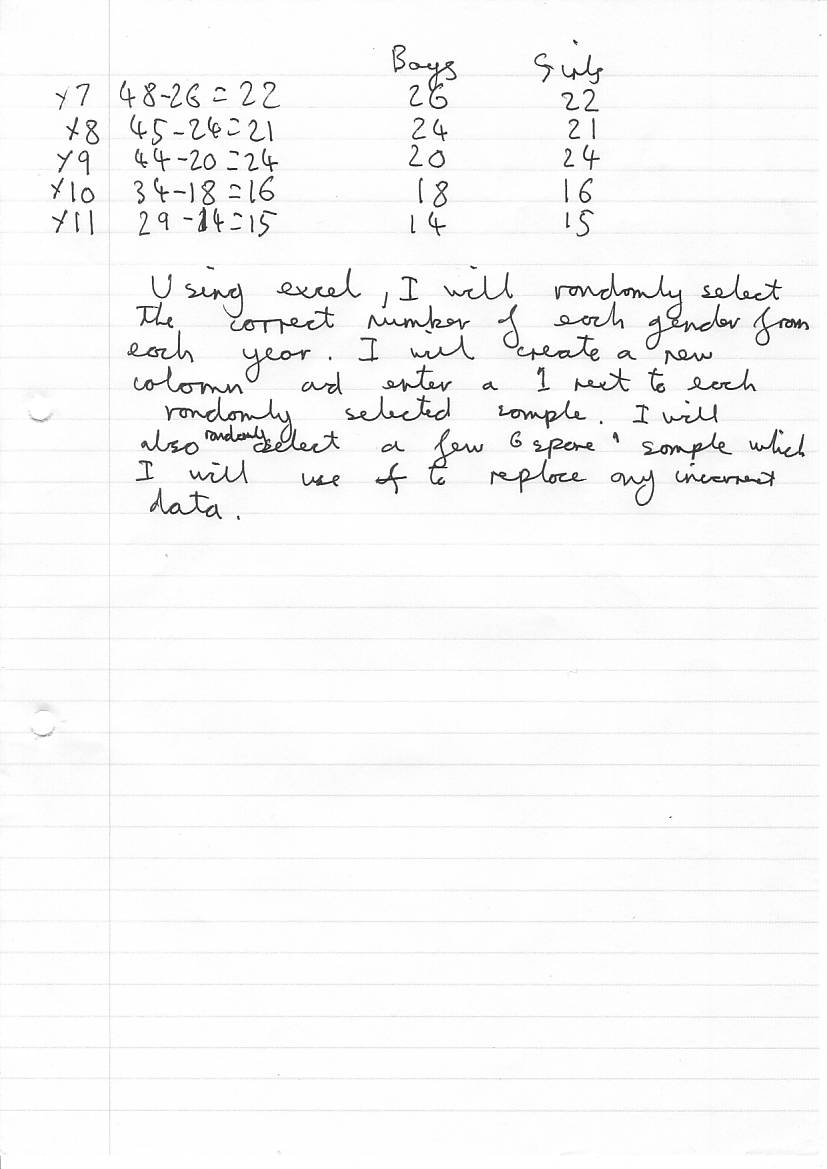 Boys Girls
Y7 48-26=22 26 22
Y8 45-24=21 24 21
Y9 44-20=24 20 24
Y10 34-18=16 18 16
Y11 29-14=15 14 15
Using excel, I will randomly select
the correct number of each gender from
each year. I will create a new
colomn ad enter a 1 next to each
randomly selected sample. I will
also randomly select a few 'spare' sample which
I will use to replace any incorrect
data.